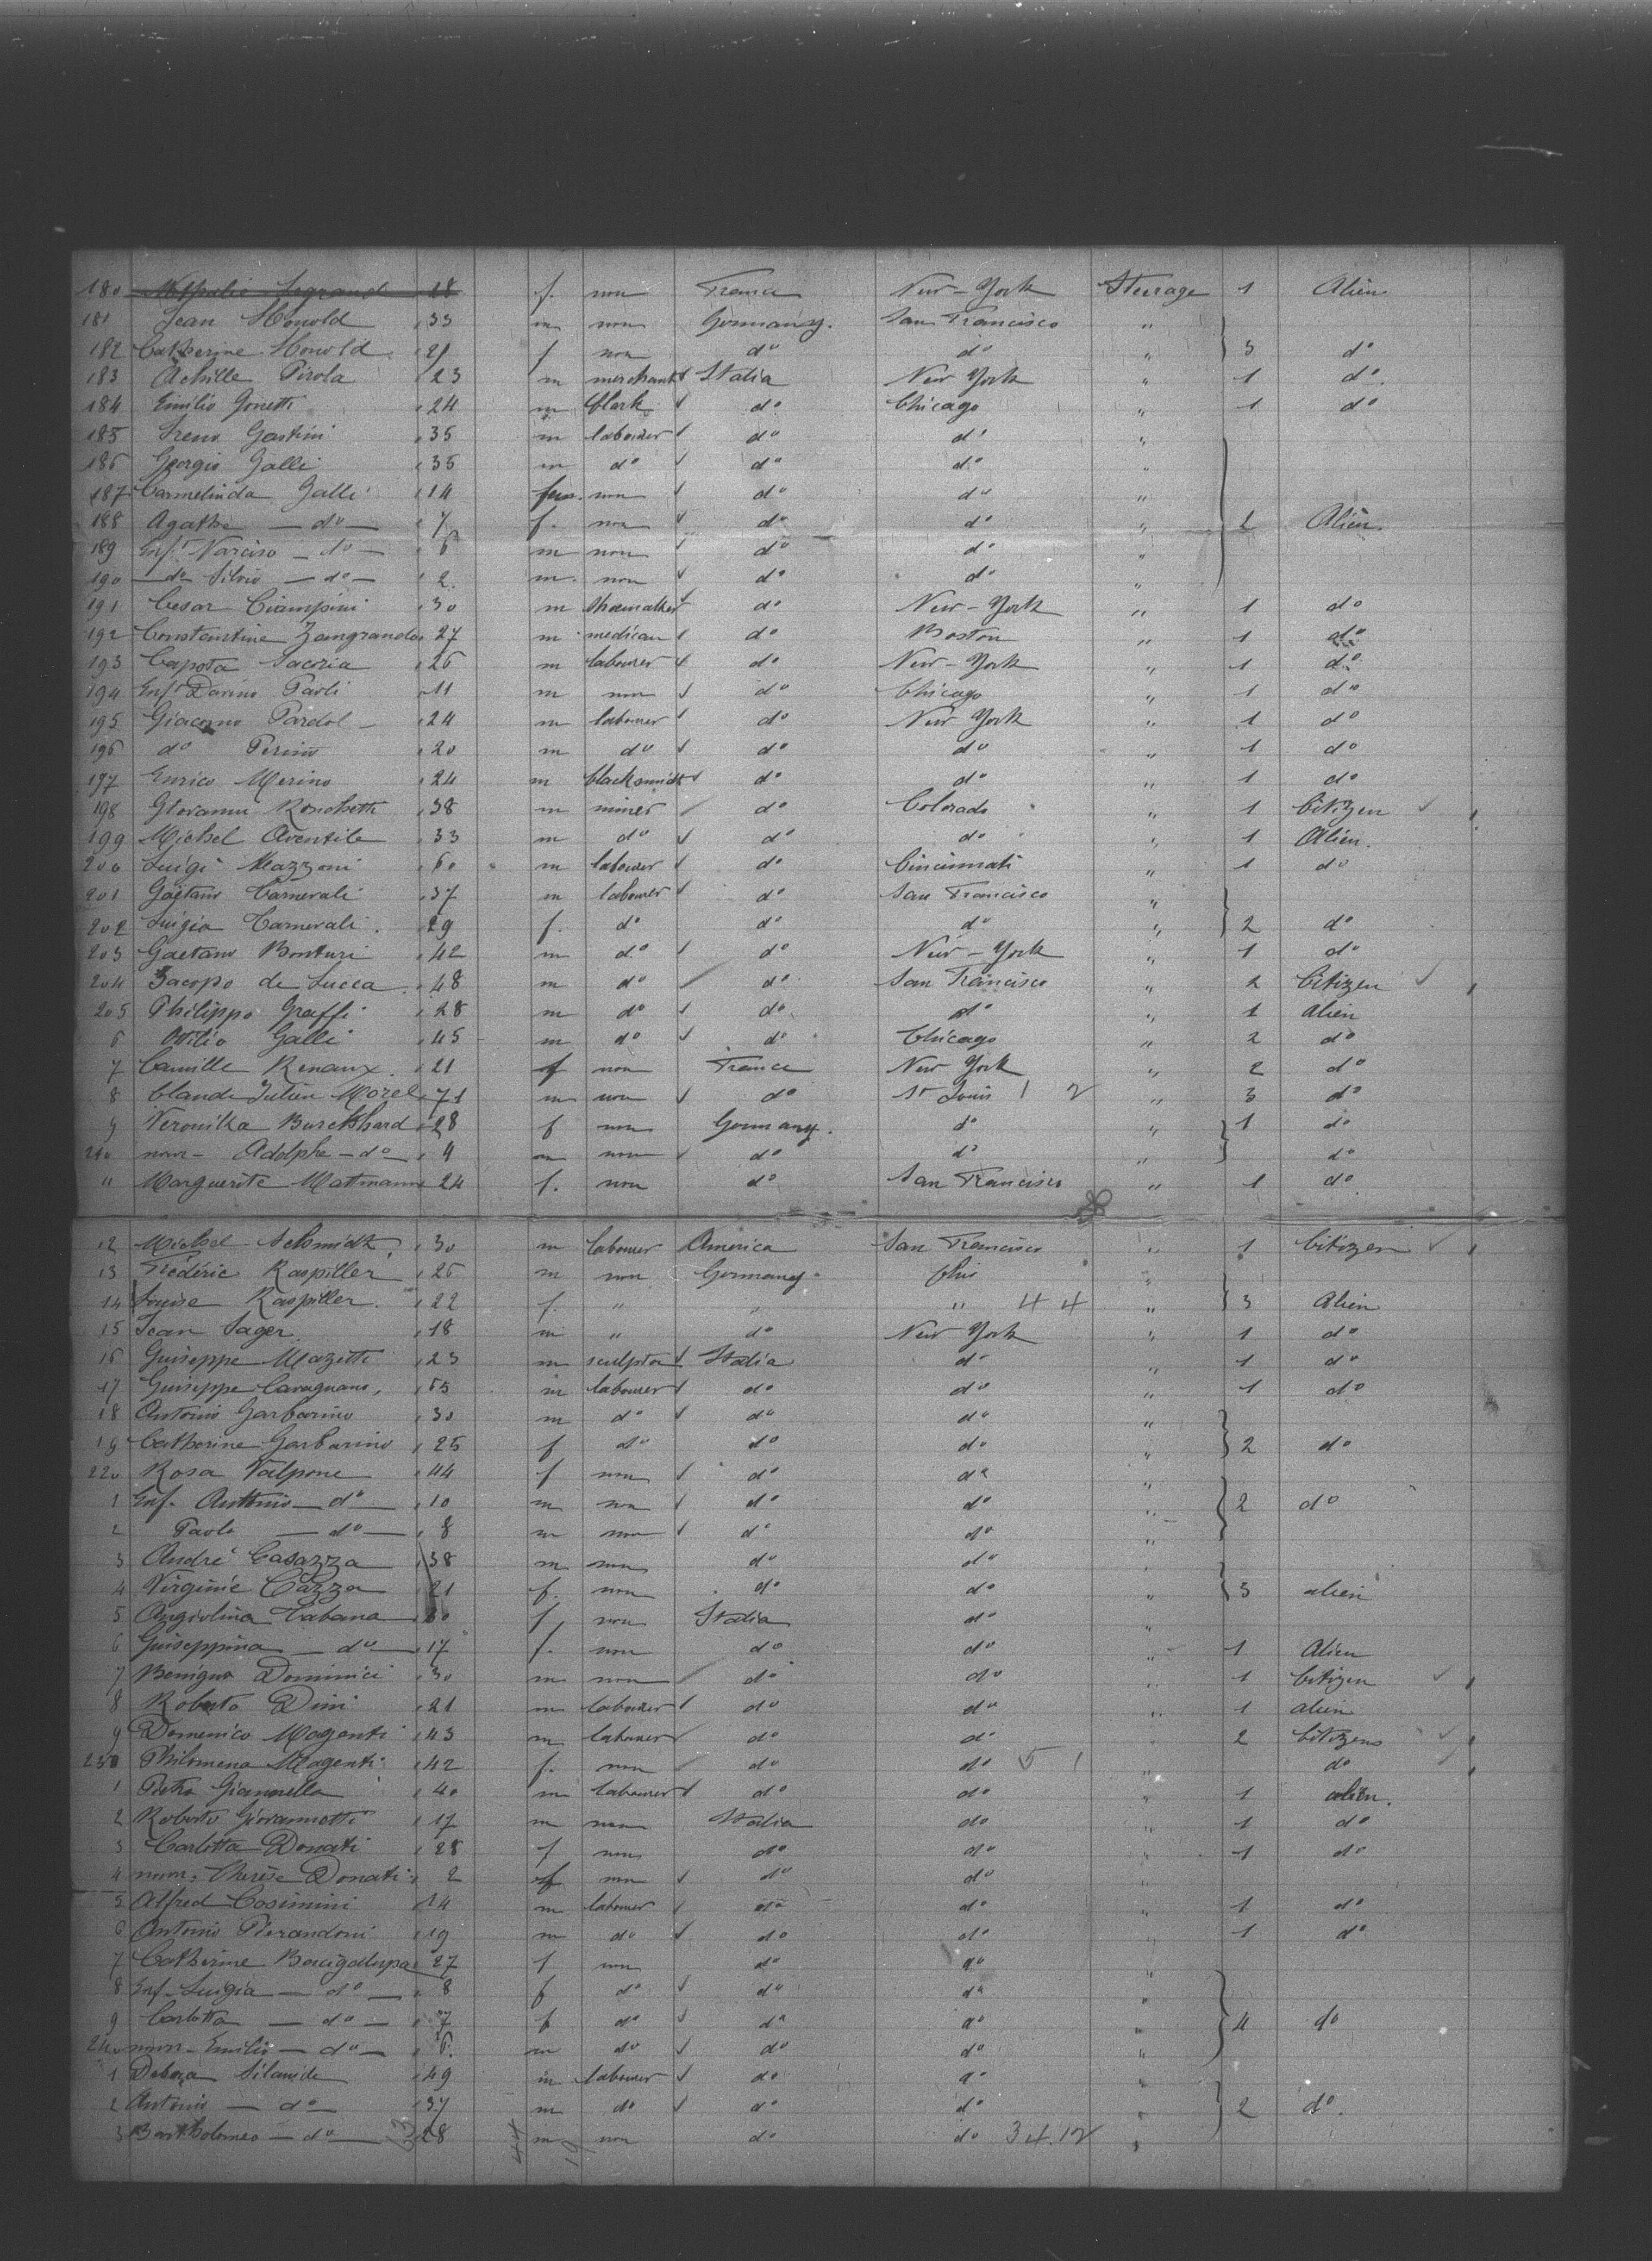 180 Nathalie Legrand 18 f. non France New-York Steerage 1 Alien
181 Jean Honold 33 m non Germany. San Francisco "
182 Catherine Honold 21 f non do do " 3 do
183 Achille Pirola 23 m merchant Italia New York " 1 do
184 Emilio Gonetti 24 m Clark do Chicago " 1 do
185 Irene Gastini 35 m labourer do do "
186 Georgio Galli 35 m do do do "
187 Carmelinda Galli 14 fem. non do do "
188 Agathe - do - 7 f. non do do " 2 Alien
189 Inft Narciso - do - 6 m non do do "
190 - do Silvio - do - 2 m. non do do "
191 Cesar Ciampini 30 m shoemaker do New-York " 1 do
192 Constantine Zangrando 27 m medican do Boston " 1 do
193 Caposa Sacoria 26 m labourer do New-York " 1 do
194 Inft Davino Paoli 11 m non do Chicago " 1 do
195 Giacomo Pardol 24 m labourer do New York " 1 do
196 do Perino 20 m do do do " 1 do
197 Enrico Merino 24 m blacksmidt do do " 1 do
198 Giovanni Ronchetti 38 m miner do Colorado " 1 Citizen
199 Michel Aventile 33 m do do do " 1 Alien.
200 Luigi Mazzoni 60 m labourer do Cincinnati " 1 do
201 Gaëtano Carnevali 37 m labourer do San Francisco "
202 Luigia Carnevali. 29 f. do do do " 2 do
203 Gaetano Bonturi 42 m do do New-York " 1 do
204 Jacopo de Lucca 48 m do do San Francisco " 2 Citizen
205 Philippo Graffi 28 m do do do " 1 alien
6 Attilio Galli 45 m do do Chicago " 2 do
7 Camille Renaux. 21 f non France New York " 2 do
8 Claude Julien Morel 71 m non do St Louis 1 2 " 3 do
9 Veronika Burckhard 28 f non Germany. do " 1 do
210 nour- Adolphe - do - 4 m non do do " do
11 Marguerite Mattmann 24 f. non do San Francisco " 1 do
12 Michel Schmidt, 30 m labourer America San Francisco " 1 Citizen
13 Frédéric Raspiller 26 m non Germany Ohio "
14 Louise Raspiller. 22 f. " " " 4 4 " 3 Alien
15 Jean Sager 18 m " do New York " 1 do
16 Guiseppe Mazetti 23 m sculptor Italia do " 1 do
17 Guiseppe Cavagnano, 55 m labourer do do " 1 do
18 Antonio Garbarino 30 m do do do "
19 Catherine Garbarino 25 f do do do " 2 do
220 Rosa Valpone 44 f non do do "
1 Inf. Antonio - do - 10 m non do do " 2 do
2 Paolo - do - 8 m non do do "
3 André Casazza 38 m non do do
4 Virginie Cazza 21 f. non do do " 3 alien
5 Angiolina Cabana 30 f non Italia do "
6 Guiseppina - do - 17 f. non do do " 1 Alien
7 Benigno Dominici 30 m non do do " 1 Citizen
8 Roberto Dini 21 m labourer do do " 1 alien
9 Domenico Magenti 43 m labourer do do 2 Citizens
230 Philomena Magenti 42 f. non do do 5 1 " do
1 Pietro Giannella 40 m labourer do do " 1 alien.
2 Roberto Giovannetti 17 m non Italia do " 1 do
3 Carlotta Donati 28 f non do do " 1 do
4 nour. Therèse Donati 2 f non do do
5 Alfred Cosimini 14 m labourer do do " 1 do
6 Antonio Pierandoni 19 m do do do " 1 do
7 Catherine Bacigalupa 27 f non do do "
8 Inf. Luigia - do - 8 f do do do "
9 Carlotta - do - 7 f do do do " 4 do
240 nour- Emilio - do - 6. m do do do "
1 Silanide 49 m labourer do do "
2 Antonio - do - 37 m do do do " 2 do.
3 Bartholomeo - do - 28 m non do do 34.12 "